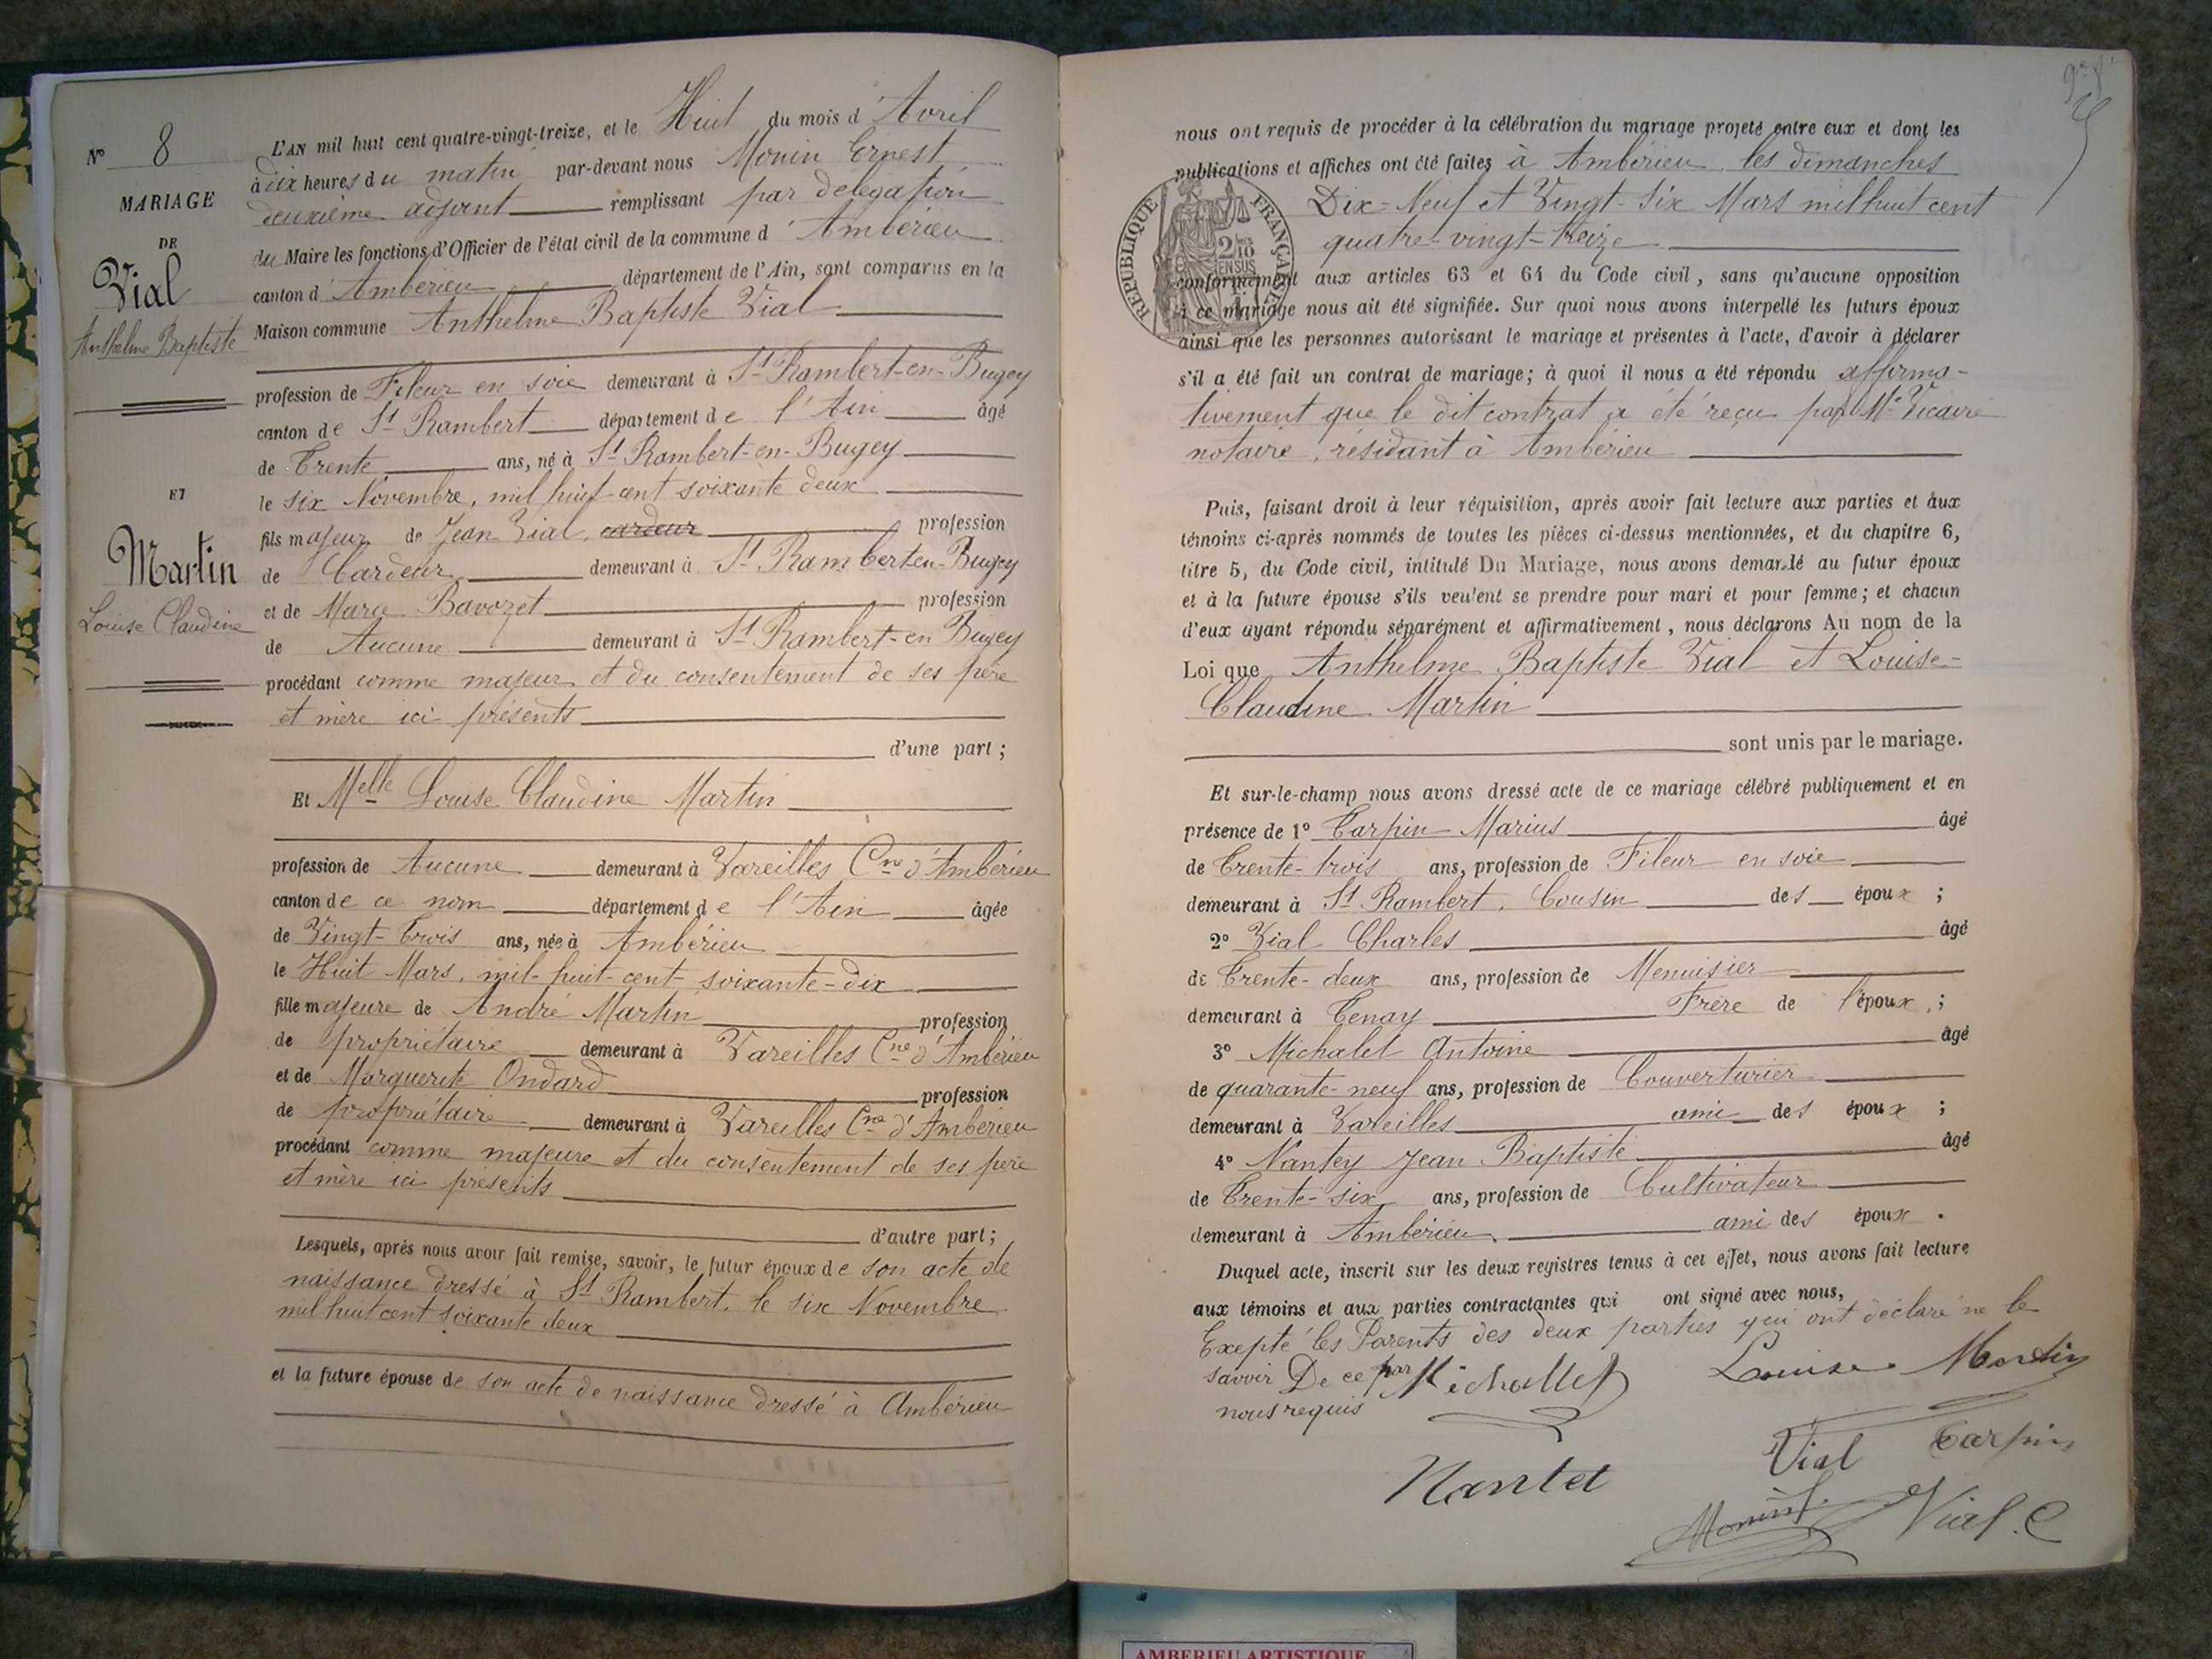 N° 8
MARIAGE
DE
Vial
Anthelme Baptiste
ET
Martin
Louise Claudine
L'AN mil huit cent quatre-vingt-treize, et le Huit du mois d'Avril
à dix heures du matin par-devant nous Monin Ernest
deuxième adjoint remplissant par délégation
du Maire les fonctions d'Officier de l'état civil de la commune d'Ambérieu
canton d'Ambérieu département de l'Ain, sont comparus en la
Maison commune Anthelme Baptiste Vial
profession de Fileur en soie demeurant à St Rambert-en-Bugey
canton de St Rambert département de l'Ain âgé
de Trente ans, né à St Rambert-en-Bugey
le six Novembre, mil huit cent soixante deux
fils majeur de Jean Vial, cardeur profession
de Cardeur demeurant à St Rambert en-Bugey
et de Marie Bavozet profession
de Aucune demeurant à St Rambert-en Bugey
procédant comme majeur et du consentement de ses père
et mère ici présents
d'une part ;
Et Melle Louise Claudine Martin
profession de Aucune demeurant à Vareilles Cne d'Ambérieu
canton de ce nom département de l'Ain âgée
de Vingt-Trois ans, née à Ambérieu
le Huit Mars, mil-huit-cent soixante-dix
fille majeure de André Martin profession
de propriétaire demeurant à Vareilles Cne d'Ambérieu
et de Marguerite Ondard profession
de propriétaire demeurant à Vareilles Cne d'Ambérieu
procédant comme majeure et du consentement de ses père
et mère ici présents
d'autre part ;
Lesquels, après nous avoir fait remise, savoir, le futur époux de son acte de
naissance dressé à St Rambert, le six Novembre
mil huit cent soixante deux
et la future épouse de son acte de naissance dressé à Ambérieu
nous ont requis de procéder à la célébration du mariage projeté entre eux et dont les
publications et affiches ont été faites à Ambérieu, les dimanches
Dix-Neuf et Vingt-Six Mars mil huit cent
quatre-vingt-treize
REPUBLIQUE FRANÇAISE
2/10 EN SUS
conformément aux articles 63 et 64 du Code civil, sans qu'aucune opposition
à ce mariage nous ait été signifiée. Sur quoi nous avons interpellé les futurs époux
ainsi que les personnes autorisant le mariage et présentes à l'acte, d'avoir à déclarer
s'il a été fait un contrat de mariage ; à quoi il nous a été répondu affirma-
tivement que le dit contrat a été reçu par Me Vicaire
notaire, résidant à Ambérieu
Puis, faisant droit à leur réquisition, après avoir fait lecture aux parties et aux
témoins ci-après nommés de toutes les pièces ci-dessus mentionnées, et du chapitre 6,
titre 5, du Code civil, intitulé Du Mariage, nous avons demandé au futur époux
et à la future épouse s'ils veulent se prendre pour mari et pour femme ; et chacun
d'eux ayant répondu séparément et affirmativement, nous déclarons Au nom de la
Loi que Anthelme Baptiste Vial et Louise-
Claudine Martin
sont unis par le mariage.
Et sur-le-champ nous avons dressé acte de ce mariage célébré publiquement et en
présence de 1° Carpin Marius âgé
de Trente-trois ans, profession de Fileur en soie
demeurant à St Rambert, Cousin des époux ;
2° Vial Charles âgé
de Trente-deux ans, profession de Menuisier
demeurant à Tenay Frère de l'époux ;
3° Michalet Antoine âgé
de quarante-neuf ans, profession de Couverturier
demeurant à Vareilles ami des époux ;
4° Nantey Jean Baptiste âgé
de Trente-six ans, profession de Cultivateur
demeurant à Ambérieu ami des époux.
Duquel acte, inscrit sur les deux registres tenus à cet effet, nous avons fait lecture
aux témoins et aux parties contractantes qui ont signé avec nous,
Excepté les Parents des deux parties qui ont déclaré ne le
savoir De ce par
nous requis
Michallet
Louise Martin
Nantet
Vial
Carpin
Monin
Vial. C
AMBERIEU ARTISTIQUE